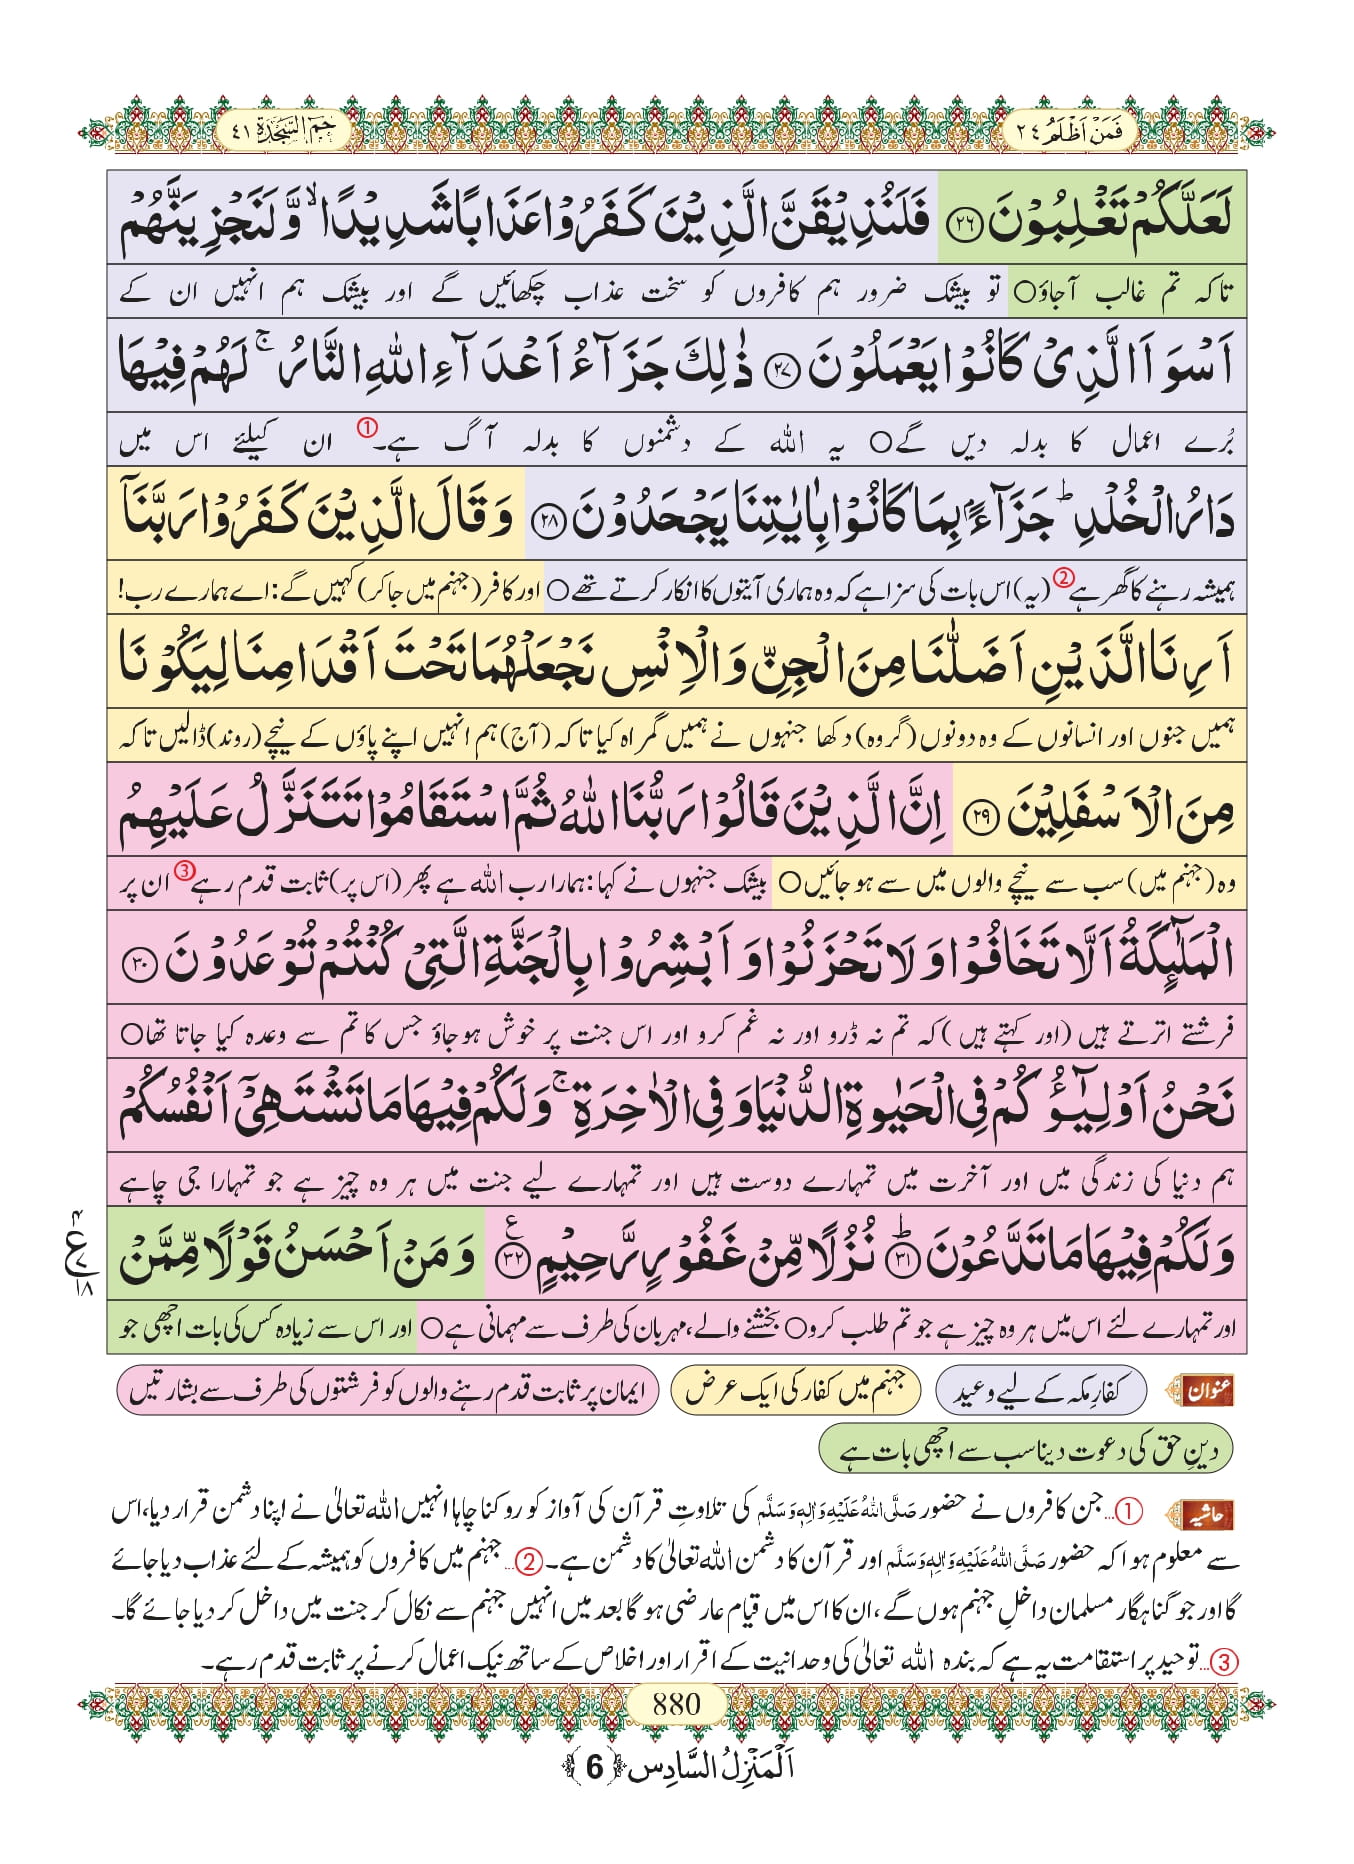 فَمَنْ اَظْلَمُ ٢٤
حٰمٓ السَّجْدَة ٤١
لَعَلَّكُمْ تَغْلِبُوْنَ ﴿۲۶﴾ فَلَنُذِیْقَنَّ الَّذِیْنَ كَفَرُوْا عَذَابًا شَدِیْدًا ۙ وَّ لَنَجْزِیَنَّهُمْ
تاکہ تم غالب آجاؤ○ تو بیشک ضرور ہم کافروں کو سخت عذاب چکھائیں گے اور بیشک ہم انہیں ان کے
اَسْوَاَ الَّذِیْ كَانُوْا یَعْمَلُوْنَ ﴿۲۷﴾ ذٰلِكَ جَزَآءُ اَعْدَآءِ اللّٰهِ النَّارُ ۚ لَهُمْ فِیْهَا
بُرے اعمال کا بدلہ دیں گے○ یہ اللہ کے دشمنوں کا بدلہ آگ ہے۔① ان کیلئے اس میں
دَارُ الْخُلْدِ ؕ جَزَآءًۢ بِمَا كَانُوْا بِاٰیٰتِنَا یَجْحَدُوْنَ ﴿۲۸﴾ وَ قَالَ الَّذِیْنَ كَفَرُوْا رَبَّنَاۤ
ہمیشہ رہنے کا گھر ہے② (یہ) اس بات کی سزا ہے کہ وہ ہماری آیتوں کا انکار کرتے تھے○ اور کافر (جہنم میں جاکر) کہیں گے: اے ہمارے رب!
اَرِنَا الَّذَیْنِ اَضَلّٰنَا مِنَ الْجِنِّ وَ الْاِنْسِ نَجْعَلْهُمَا تَحْتَ اَقْدَامِنَا لِیَكُوْنَا
ہمیں جنوں اور انسانوں کے وہ دونوں (گروہ) دکھا جنہوں نے ہمیں گمراہ کیا تاکہ (آج) ہم انہیں اپنے پاؤں کے نیچے (روند) ڈالیں تاکہ
مِنَ الْاَسْفَلِیْنَ ﴿۲۹﴾ اِنَّ الَّذِیْنَ قَالُوْا رَبُّنَا اللّٰهُ ثُمَّ اسْتَقَامُوْا تَتَنَزَّلُ عَلَیْهِمُ
وہ (جہنم میں) سب سے نیچے والوں میں سے ہوجائیں○ بیشک جنہوں نے کہا: ہمارا رب اللہ ہے پھر (اس پر) ثابت قدم رہے③ ان پر
الْمَلٰٓىٕكَةُ اَلَّا تَخَافُوْا وَ لَا تَحْزَنُوْا وَ اَبْشِرُوْا بِالْجَنَّةِ الَّتِیْ كُنْتُمْ تُوْعَدُوْنَ ﴿۳۰﴾
فرشتے اترتے ہیں (اور کہتے ہیں) کہ تم نہ ڈرو اور نہ غم کرو اور اس جنت پر خوش ہوجاؤ جس کا تم سے وعدہ کیا جاتا تھا○
نَحْنُ اَوْلِیٰٓؤُكُمْ فِی الْحَیٰوةِ الدُّنْیَا وَ فِی الْاٰخِرَةِ ۚ وَ لَكُمْ فِیْهَا مَا تَشْتَهِیْۤ اَنْفُسُكُمْ
ہم دنیا کی زندگی میں اور آخرت میں تمہارے دوست ہیں اور تمہارے لیے جنت میں ہر وہ چیز ہے جو تمہارا جی چاہے
وَ لَكُمْ فِیْهَا مَا تَدَّعُوْنَ ؕ﴿۳۱﴾ نُزُلًا مِّنْ غَفُوْرٍ رَّحِیْمٍ ﴿۳۲﴾ ع وَ مَنْ اَحْسَنُ قَوْلًا مِّمَّنْ
٤ ع ٧ ١٨
اور تمہارے لئے اس میں ہر وہ چیز ہے جو تم طلب کرو○ بخشنے والے، مہربان کی طرف سے مہمانی ہے○ اور اس سے زیادہ کس کی بات اچھی جو
عنوان کفارِ مکہ کے لیے وعید جہنم میں کفار کی ایک عرض ایمان پر ثابت قدم رہنے والوں کو فرشتوں کی طرف سے بشارتیں
دینِ حق کی دعوت دینا سب سے اچھی بات ہے
حاشیہ ①...جن کافروں نے حضور صَلَّی اللّٰهُ عَلَیْهِ وَاٰلِهٖ وَسَلَّم کی تلاوتِ قرآن کی آواز کو روکنا چاہا انہیں اللہ تعالیٰ نے اپنا دشمن قرار دیا، اس
سے معلوم ہوا کہ حضور صَلَّی اللّٰهُ عَلَیْهِ وَاٰلِهٖ وَسَلَّم اور قرآن کا دشمن اللہ تعالیٰ کا دشمن ہے۔ ②...جہنم میں کافروں کو ہمیشہ کے لئے عذاب دیا جائے
گا اور جو گناہگار مسلمان داخلِ جہنم ہوں گے، ان کا اس میں قیام عارضی ہوگا بعد میں انہیں جہنم سے نکال کر جنت میں داخل کردیا جائے گا۔
③...توحید پر استقامت یہ ہے کہ بندہ اللہ تعالیٰ کی وحدانیت کے اقرار اور اخلاص کے ساتھ نیک اعمال کرنے پر ثابت قدم رہے۔
880
اَلْمَنْزِلُ السَّادِس ﴿6﴾